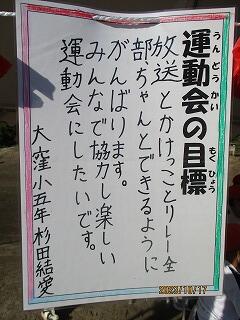 運動会の目標
うんどうかい
もくひょう
放送とかけっことリレー全
部、ちゃんとできるように
がんばります。
みんなで協力し楽しい
運動会にしたいです。
大窪小五年 杉田結愛
2023/10/17